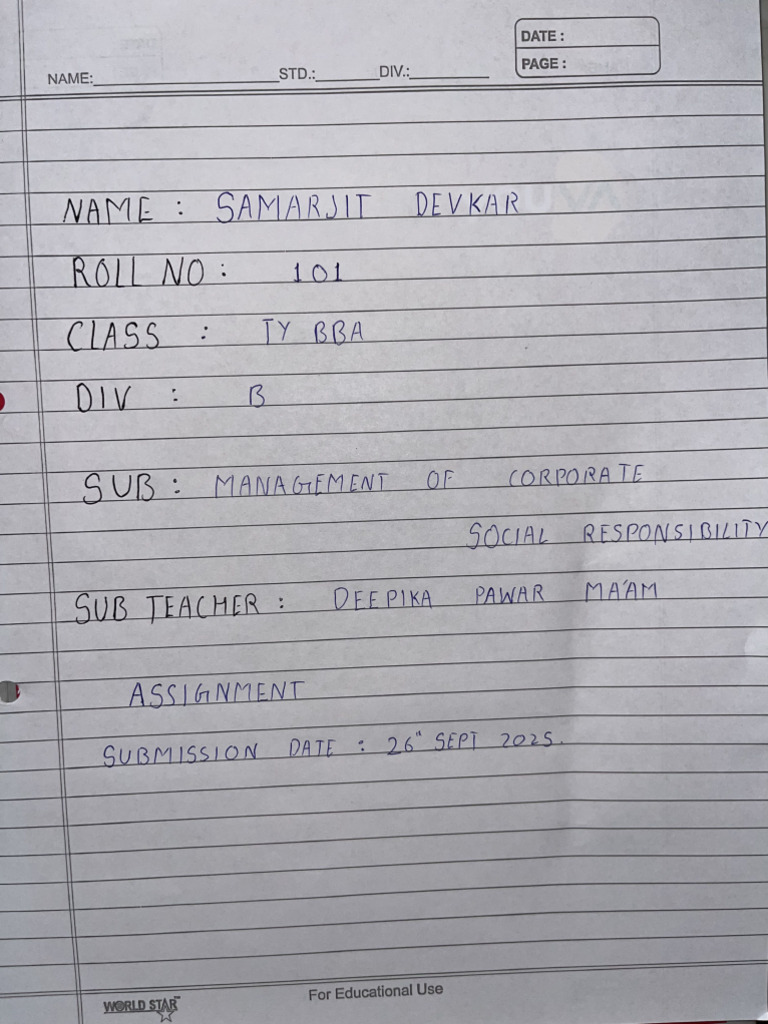 DATE :
PAGE :
NAME:____________ STD.:______ DIV.:________
NAME : SAMARJIT DEVKAR
ROLL NO : 101
CLASS : TY BBA
DIV : B
SUB : MANAGEMENT OF CORPORATE
SOCIAL RESPONSIBILITY
SUB TEACHER : DEEPIKA PAWAR MA'AM
ASSIGNMENT
SUBMISSION DATE : 26" SEPT 2025.
WORLD STAR
For Educational Use